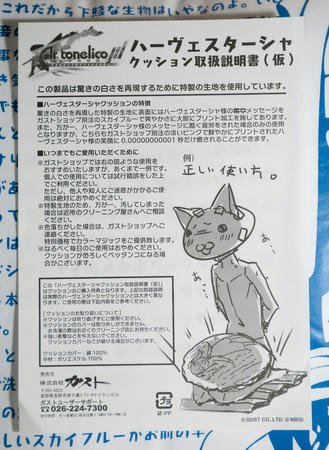 これだから下賤な生物はいやなのよ。いい
Ar tonelico III
ハーヴェスターシャ
クッション取扱説明書（仮）
この製品は驚きの白さを再現するために特製の生地を使用しています。
■ハーヴェスターシャクッションの特徴
驚きの白さを再現した特製の生地に表面にはハーヴェスターシャ様の罵倒メッセージを
ガストショップ別注のスカイブルーで爽やかさに大胆にプリント加工を施してあります。
また、万が一、ハーヴェスターシャ様のメッセージに酷く疲労をされた場合のみの使用
となりますが、こちらもガストショップ別注の淡いピンクで鮮やかにプリントされた
ハーヴェスターシャ様の笑顔に0.00000000001秒だけ癒されることができます。
■いつまでもご愛用いただくために
※ガストショップでは右の図のような使用を
おすすめいたしますが、あくまで一例です。
個人での使用については試行錯誤をした上
でご利用ください。
ただし、他人や知人にご迷惑がかかるご使
用は絶対におやめください。
※特製生地のため、万が一、汚してしまった
場合は近所のクリーニング屋さんへご相談
くださいませ。
※色落ちがした場合は、ガストショップへご
連絡ください。
特別価格でカラーマジックをご提供致します。
※なるべく毎日のご使用はおやめください。
クッションが恐ろしくペッタンコになる場
合がございます。
例）
正しい使い方。
あ。
この「ハーヴェスターシャクッション取扱説明書（仮）」
はクッションのご購入特典となります。上記の取扱説明
は実際のハーヴェスターシャクッションとは大きく異な
ります。ご使用の際は下記内容をご参考ください。
【クッションのお取り扱いについて】
※クッションは折り曲げずにご使用ください。
※クッションのカバーは取り外しができません。
※お洗濯の際は表示に従って行ってください。
※強い衝撃などを与えないでください。
クッションカバーなどが破ける場合がございます。
クッションカバー：綿 100%
中材：ポリエステル 100%
発売元
株式会社ガスト
〒380-0823
ガストユーザーサポート
☎026-224-7300
袋:PP
©GUST CO.,LTD. ©NBGI
しいスカイブルーがお肌い